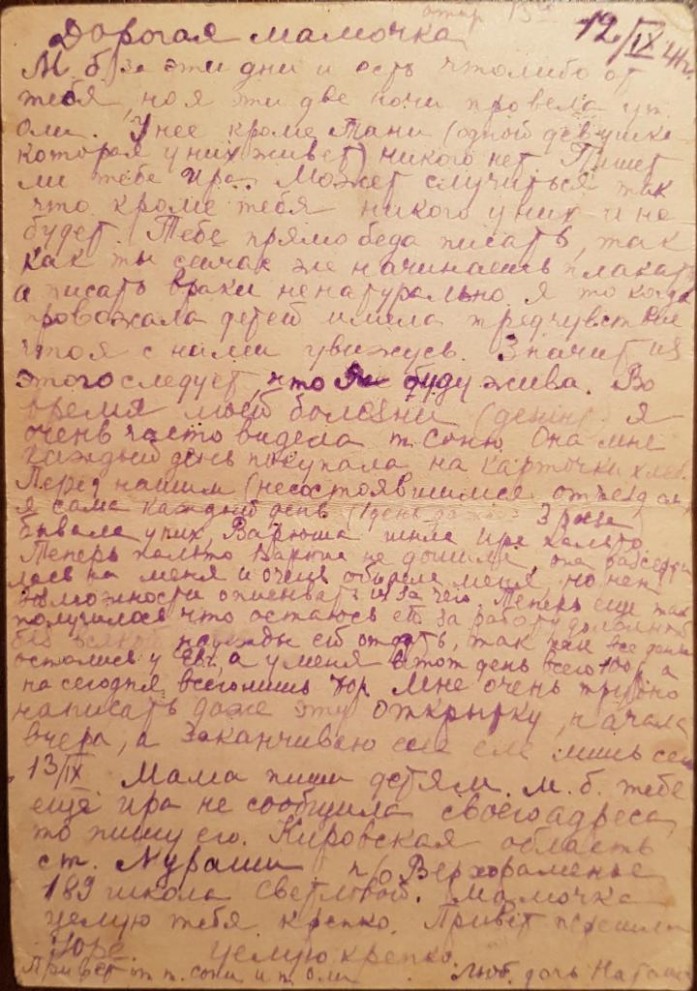 12/IX 41 г.
Дорогая мамочка
М. б. за эти дни и есть что либо от
тебя, но я эти две ночи провела у т.
Оли. У нее кроме Тани (одной девушки
которая у них живет) никого нет. Пишет
ли тебе Ира. Может случиться так
что кроме тебя никого у них и не
будет. Тебе прямо беда писать, так
как ты сейчас же начинаешь плакать
а писать враки ненатурально. Я то когда
провожала детей имела предчувствие
что я с ними увижусь. Значит из
этого следует, что я буду жива. Во
время моей болезни я
очень часто видела т. Соню. Она мне
каждый день покупала на карточки хлеб.
Перед нашим (несостоявшимся отъездом)
я сама каждый день 3 раза
бывала у них, Варюша шила Ире пальто
Теперь пальто Варюша не дошила, она рассерди
лась на меня и очень обидела меня, но нет
возможности описывать из за чего. Теперь еще так
получилось что остаюсь ей за работу должна
без всякой надежды ей отдать, так как все деньги
остались у а у меня в этот день всего 100 р. а
на сегодня всего лишь Мне очень трудно
написать даже эту открытку, начала
вчера, а заканчиваю еле лишь
13/IX Мама пиши детям. М. б. тебе
ещё Ира не сообщила своего адреса,
то пишу его. Кировская область
ст. Мураши п/о Верхораменье
189 школа Светловой. Мамочка
целую тебя крепко. Привет
Юре. Целую крепко
Привет от т. Сони и т. Оли люб. дочь Наташа